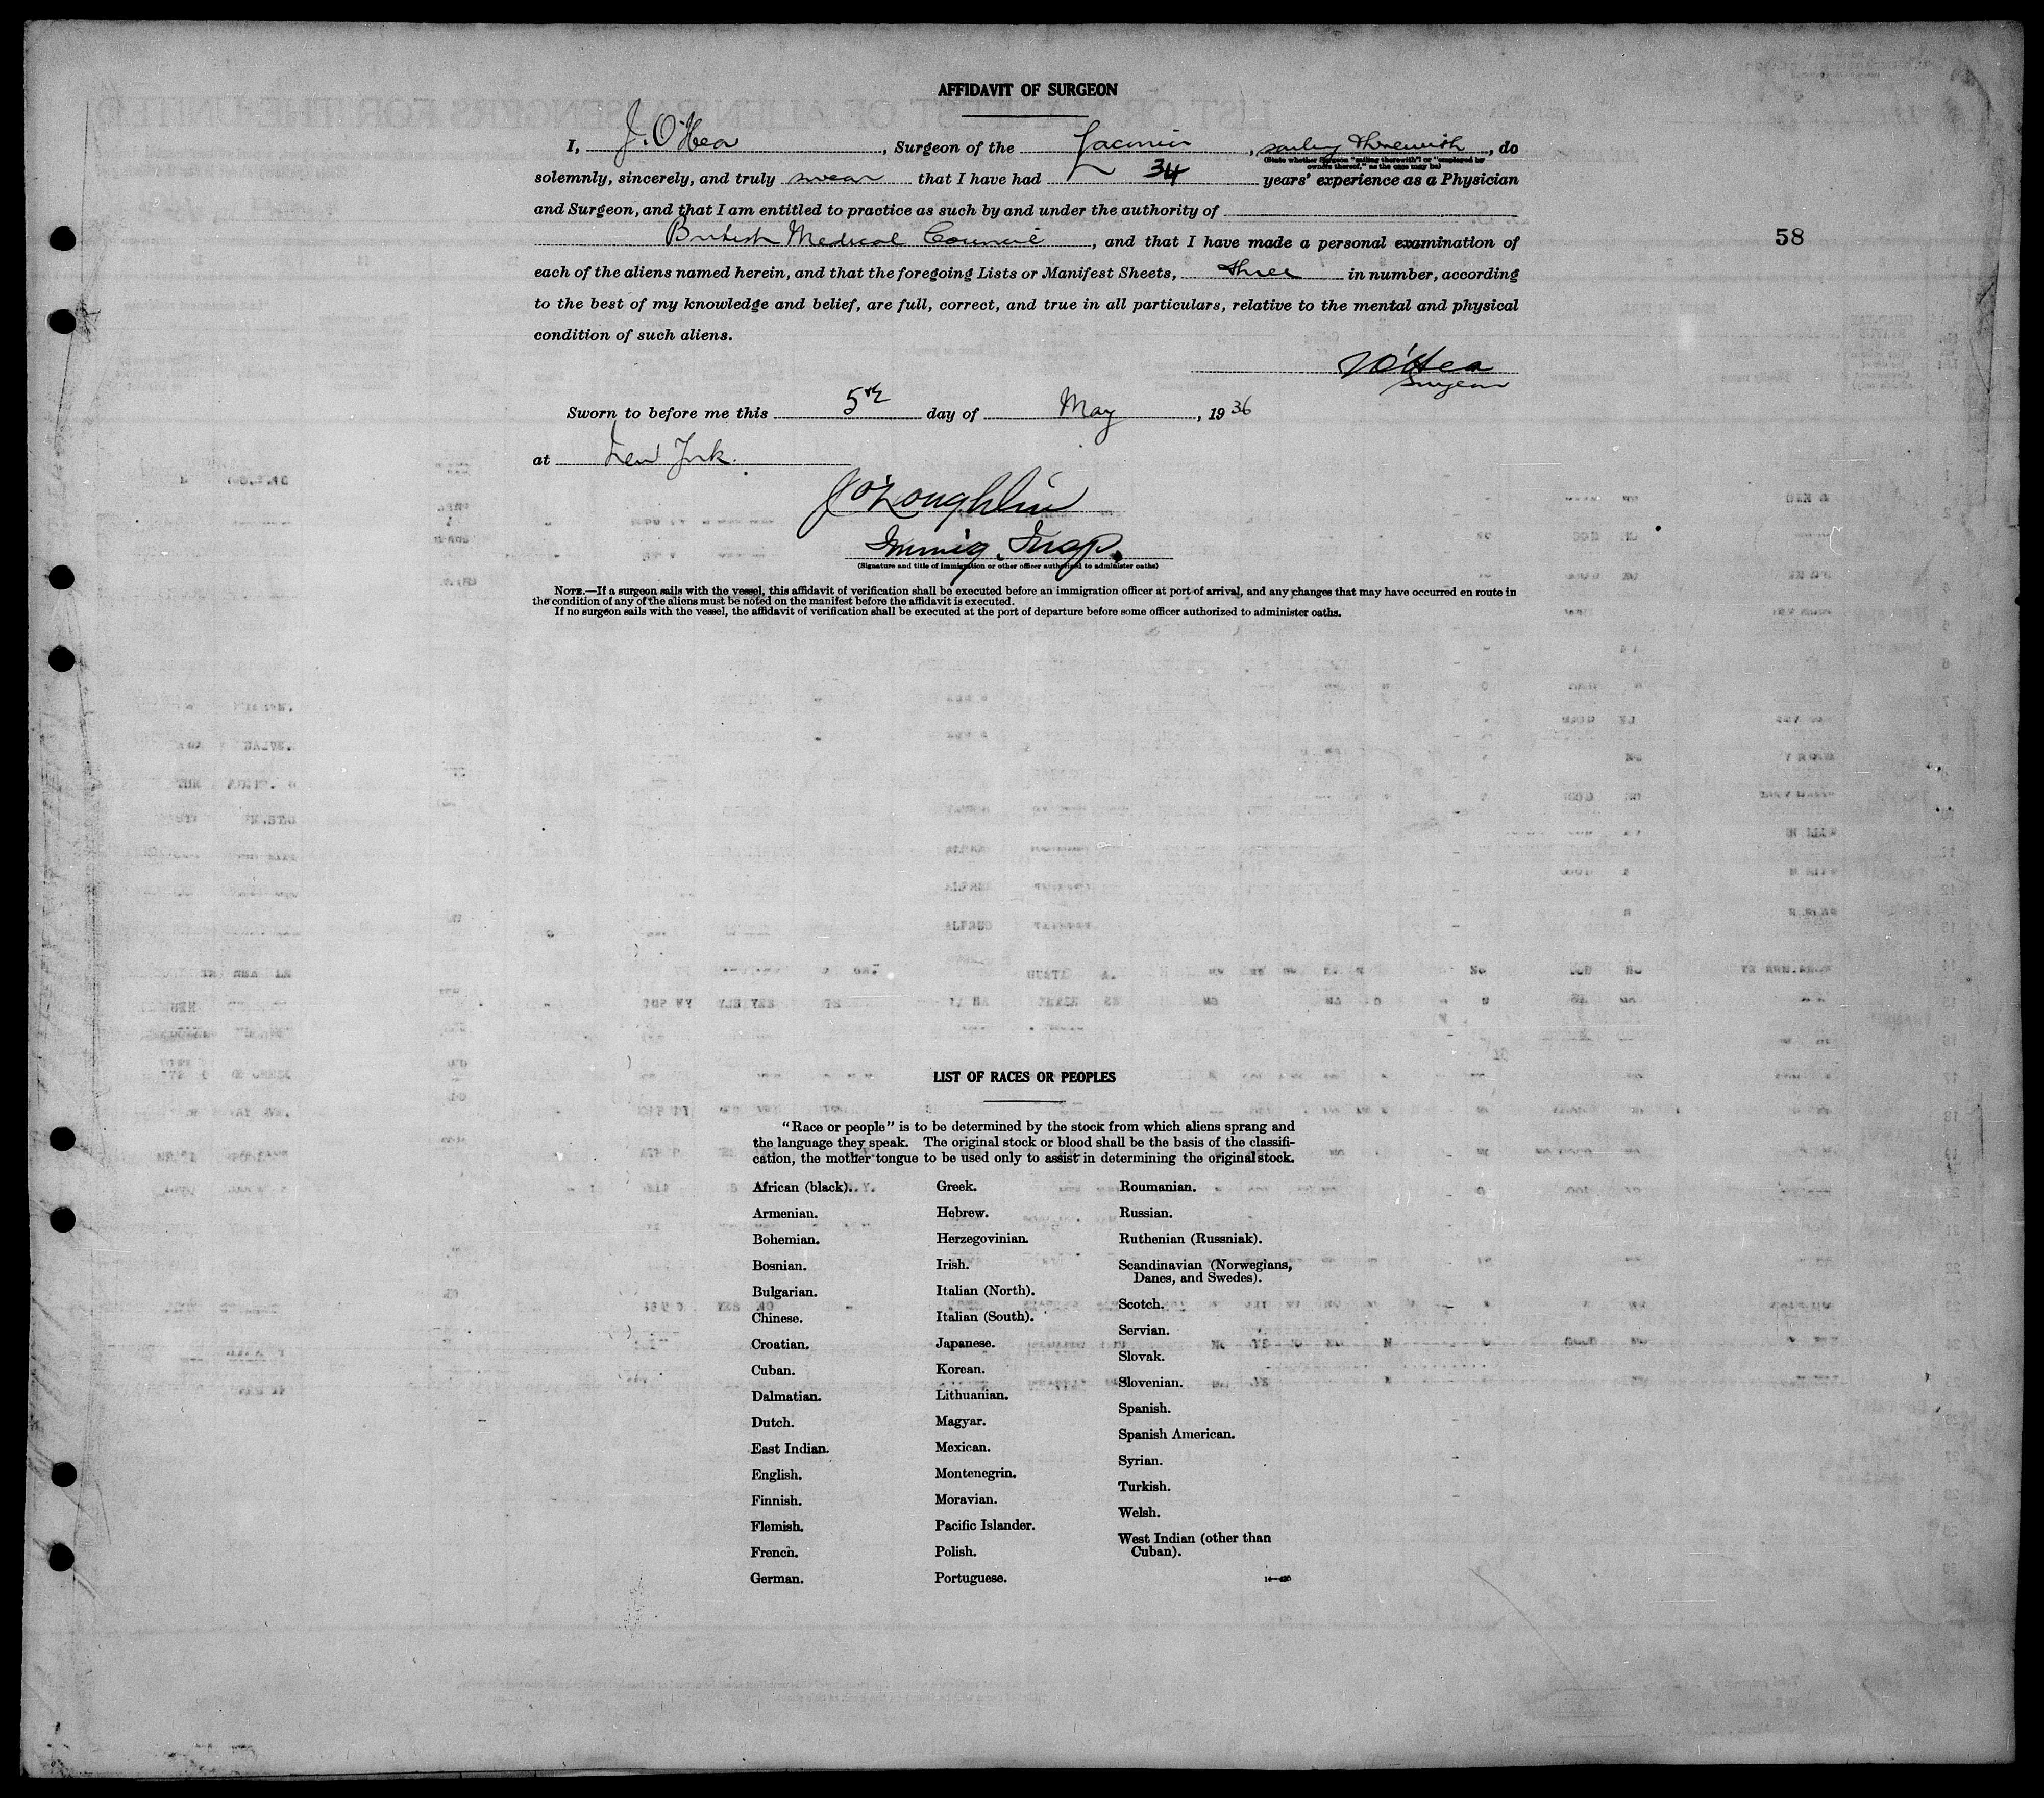 AFFIDAVIT OF SURGEON
I, J. O'Hea, Surgeon of the Laconia, sailing therewith, do
(State whether Surgeon "sailing therewith" or "employed by
owners thereof," as the case may be)
solemnly, sincerely, and truly swear that I have had 34 years' experience as a Physician
and Surgeon, and that I am entitled to practice as such by and under the authority of
British Medical Council, and that I have made a personal examination of
58
each of the aliens named herein, and that the foregoing Lists or Manifest Sheets, three in number, according
to the best of my knowledge and belief, are full, correct, and true in all particulars, relative to the mental and physical
condition of such aliens.
J O'Hea
Surgeon
Sworn to before me this 5th day of May, 1936
at New York.
J O'Loughlin
Immig. Insp.
(Signature and title of immigration or other officer authorized to administer oaths)
NOTE.—If a surgeon sails with the vessel, this affidavit of verification shall be executed before an immigration officer at port of arrival, and any changes that may have occurred en route in
the condition of any of the aliens must be noted on the manifest before the affidavit is executed.
If no surgeon sails with the vessel, the affidavit of verification shall be executed at the port of departure before some officer authorized to administer oaths.
LIST OF RACES OR PEOPLES
"Race or people" is to be determined by the stock from which aliens sprang and
the language they speak. The original stock or blood shall be the basis of the classifi-
cation, the mother tongue to be used only to assist in determining the original stock.
African (black).
Armenian.
Bohemian.
Bosnian.
Bulgarian.
Chinese.
Croatian.
Cuban.
Dalmatian.
Dutch.
East Indian.
English.
Finnish.
Flemish.
French.
German.
Greek.
Hebrew.
Herzegovinian.
Irish.
Italian (North).
Italian (South).
Japanese.
Korean.
Lithuanian.
Magyar.
Mexican.
Montenegrin.
Moravian.
Pacific Islander.
Polish.
Portuguese.
Roumanian.
Russian.
Ruthenian (Russniak).
Scandinavian (Norwegians,
Danes, and Swedes).
Scotch.
Servian.
Slovak.
Slovenian.
Spanish.
Spanish American.
Syrian.
Turkish.
Welsh.
West Indian (other than
Cuban).